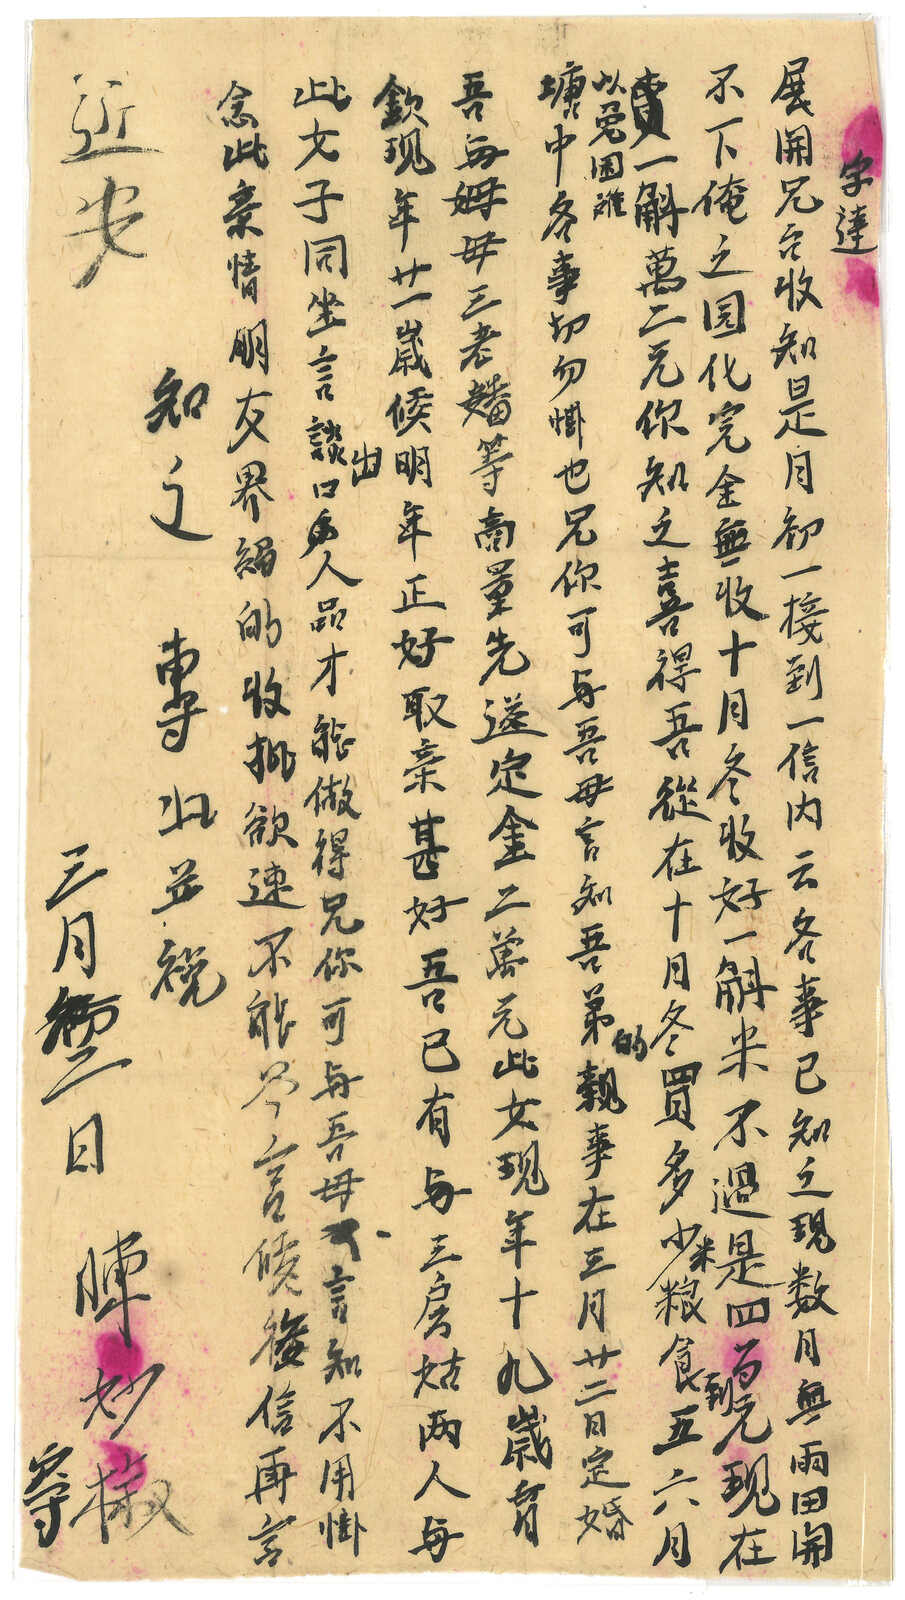 字達
展開兄台收知是月初一接到一信内云各事已知之現数月無雨田開
不下俺之园化完全無收十月冬收好一斛米不過是四百元現在
賣一斛萬二元你知之喜得吾從在十月冬買多少米粮食到五六月
以免困难
塘中各事切勿掛也兄你可与吾母言知吾弟的親事在三月廿二日定婚
吾与姆毋三老嬸等商量先送定金二萬元此女現年十九歲肖
欽现年廿一歲候明年正好取亲甚好吾已有与三房姑两人与
此女子同坐言談出口為人品才能做得兄你可与吾母言知不用掛
念此亲情朋友界紹的收批欲速不能尽言候後信再言
知之 專此並祝
近安
三月初二日
陣炒椒
寄